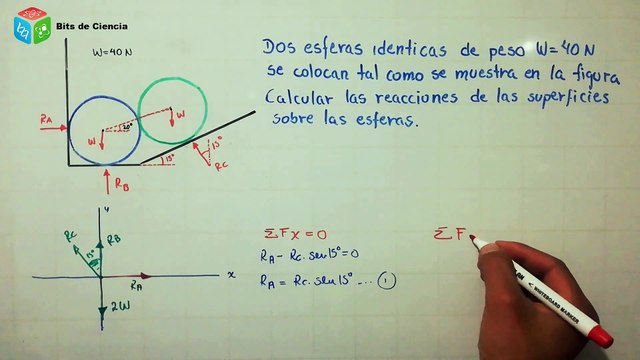 Bits de Ciencia
W=40N
Dos esferas identicas de peso W=40N
se colocan tal como se muestra en la figura
Calcular las reacciones de las superficies
sobre las esferas.
RA
W
W
20°
15°
15°
RC
RB
y
RC
RB
15°
RA
x
2W
ΣFx=0
RA - RC.sen15°=0
RA = RC.sen15° ... 1
ΣF
WHITEBOARD MARKER